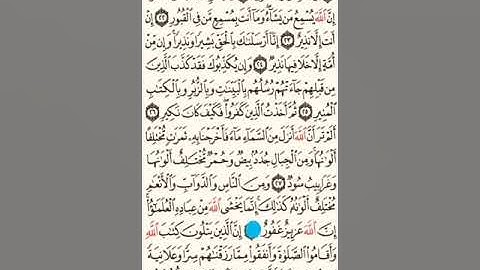 إِنَّ ٱللَّهَ يُسْمِعُ مَن يَشَآءُ ۖ وَمَآ أَنتَ بِمُسْمِعٍ مَّن فِى ٱلْقُبُورِ ٢٢ إِنْ
أَنتَ إِلَّا نَذِيرٌ ٢٣ إِنَّآ أَرْسَلْنَٰكَ بِٱلْحَقِّ بَشِيرًا وَنَذِيرًا ۚ وَإِن مِّنْ
أُمَّةٍ إِلَّا خَلَا فِيهَا نَذِيرٌ ٢٤ وَإِن يُكَذِّبُوكَ فَقَدْ كَذَّبَ ٱلَّذِينَ
مِن قَبْلِهِمْ جَآءَتْهُمْ رُسُلُهُم بِٱلْبَيِّنَٰتِ وَبِٱلزُّبُرِ وَبِٱلْكِتَٰبِ
ٱلْمُنِيرِ ٢٥ ثُمَّ أَخَذْتُ ٱلَّذِينَ كَفَرُوا۟ ۖ فَكَيْفَ كَانَ نَكِيرِ ٢٦
أَلَمْ تَرَ أَنَّ ٱللَّهَ أَنزَلَ مِنَ ٱلسَّمَآءِ مَآءً فَأَخْرَجْنَا بِهِۦ ثَمَرَٰتٍ مُّخْتَلِفًا
أَلْوَٰنُهَا ۚ وَمِنَ ٱلْجِبَالِ جُدَدٌۢ بِيضٌ وَحُمْرٌ مُّخْتَلِفٌ أَلْوَٰنُهَا
وَغَرَابِيبُ سُودٌ ٢٧ وَمِنَ ٱلنَّاسِ وَٱلدَّوَآبِّ وَٱلْأَنْعَٰمِ
مُخْتَلِفٌ أَلْوَٰنُهُۥ كَذَٰلِكَ ۗ إِنَّمَا يَخْشَى ٱللَّهَ مِنْ عِبَادِهِ ٱلْعُلَمَٰٓؤُا۟ ۗ
إِنَّ ٱللَّهَ عَزِيزٌ غَفُورٌ إِنَّ ٱلَّذِينَ يَتْلُونَ كِتَٰبَ ٱللَّهِ
وَأَقَامُوا۟ ٱلصَّلَوٰةَ وَأَنفَقُوا۟ مِمَّا رَزَقْنَٰهُمْ سِرًّا وَعَلَانِيَةً